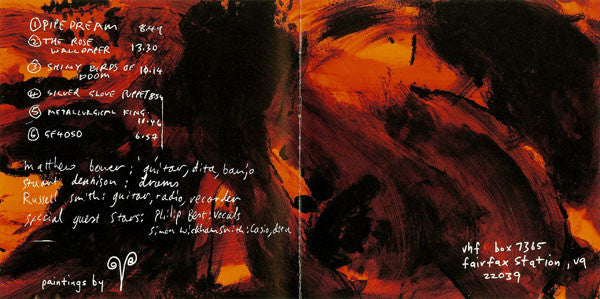 ① PIPE DREAM 8.47
② THE ROSE
WALLPAPER 13.30
③ SHINY BIRDS OF
DOOM 10.14
④ SILVER GLOVE PUPPET 8.54
⑤ METALLURGICAL KING.
10.46
⑥ GE40SD 6.57
matthew bower: guitar, dita, banjo
Stuart dennison: drums
Russell smith: guitar, radio, recorder
special guest stars: Philip Best: vocals
Simon Wickham-Smith: Casio, dita
paintings by
vhf box 7365
fairfax station, va
22039